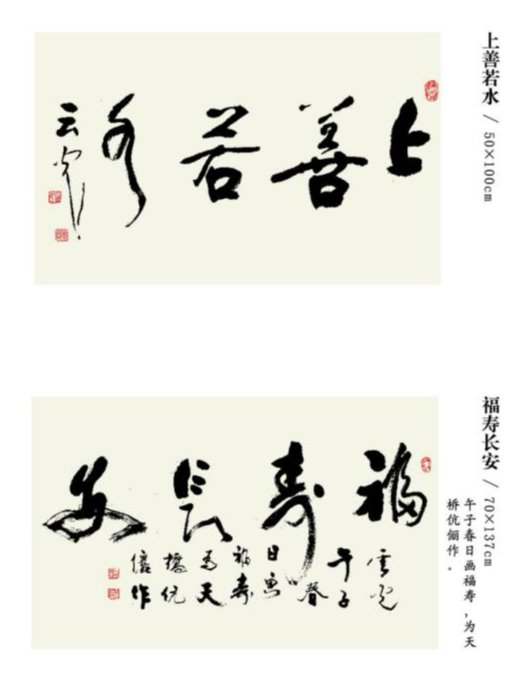 上善若水 / 50×100cm
上善若水
云
福寿长安 / 70×137cm
午子春日画福寿，为天
桥伉俪作。
福寿长安
午子春
日画
福寿
为天
桥伉
俪作